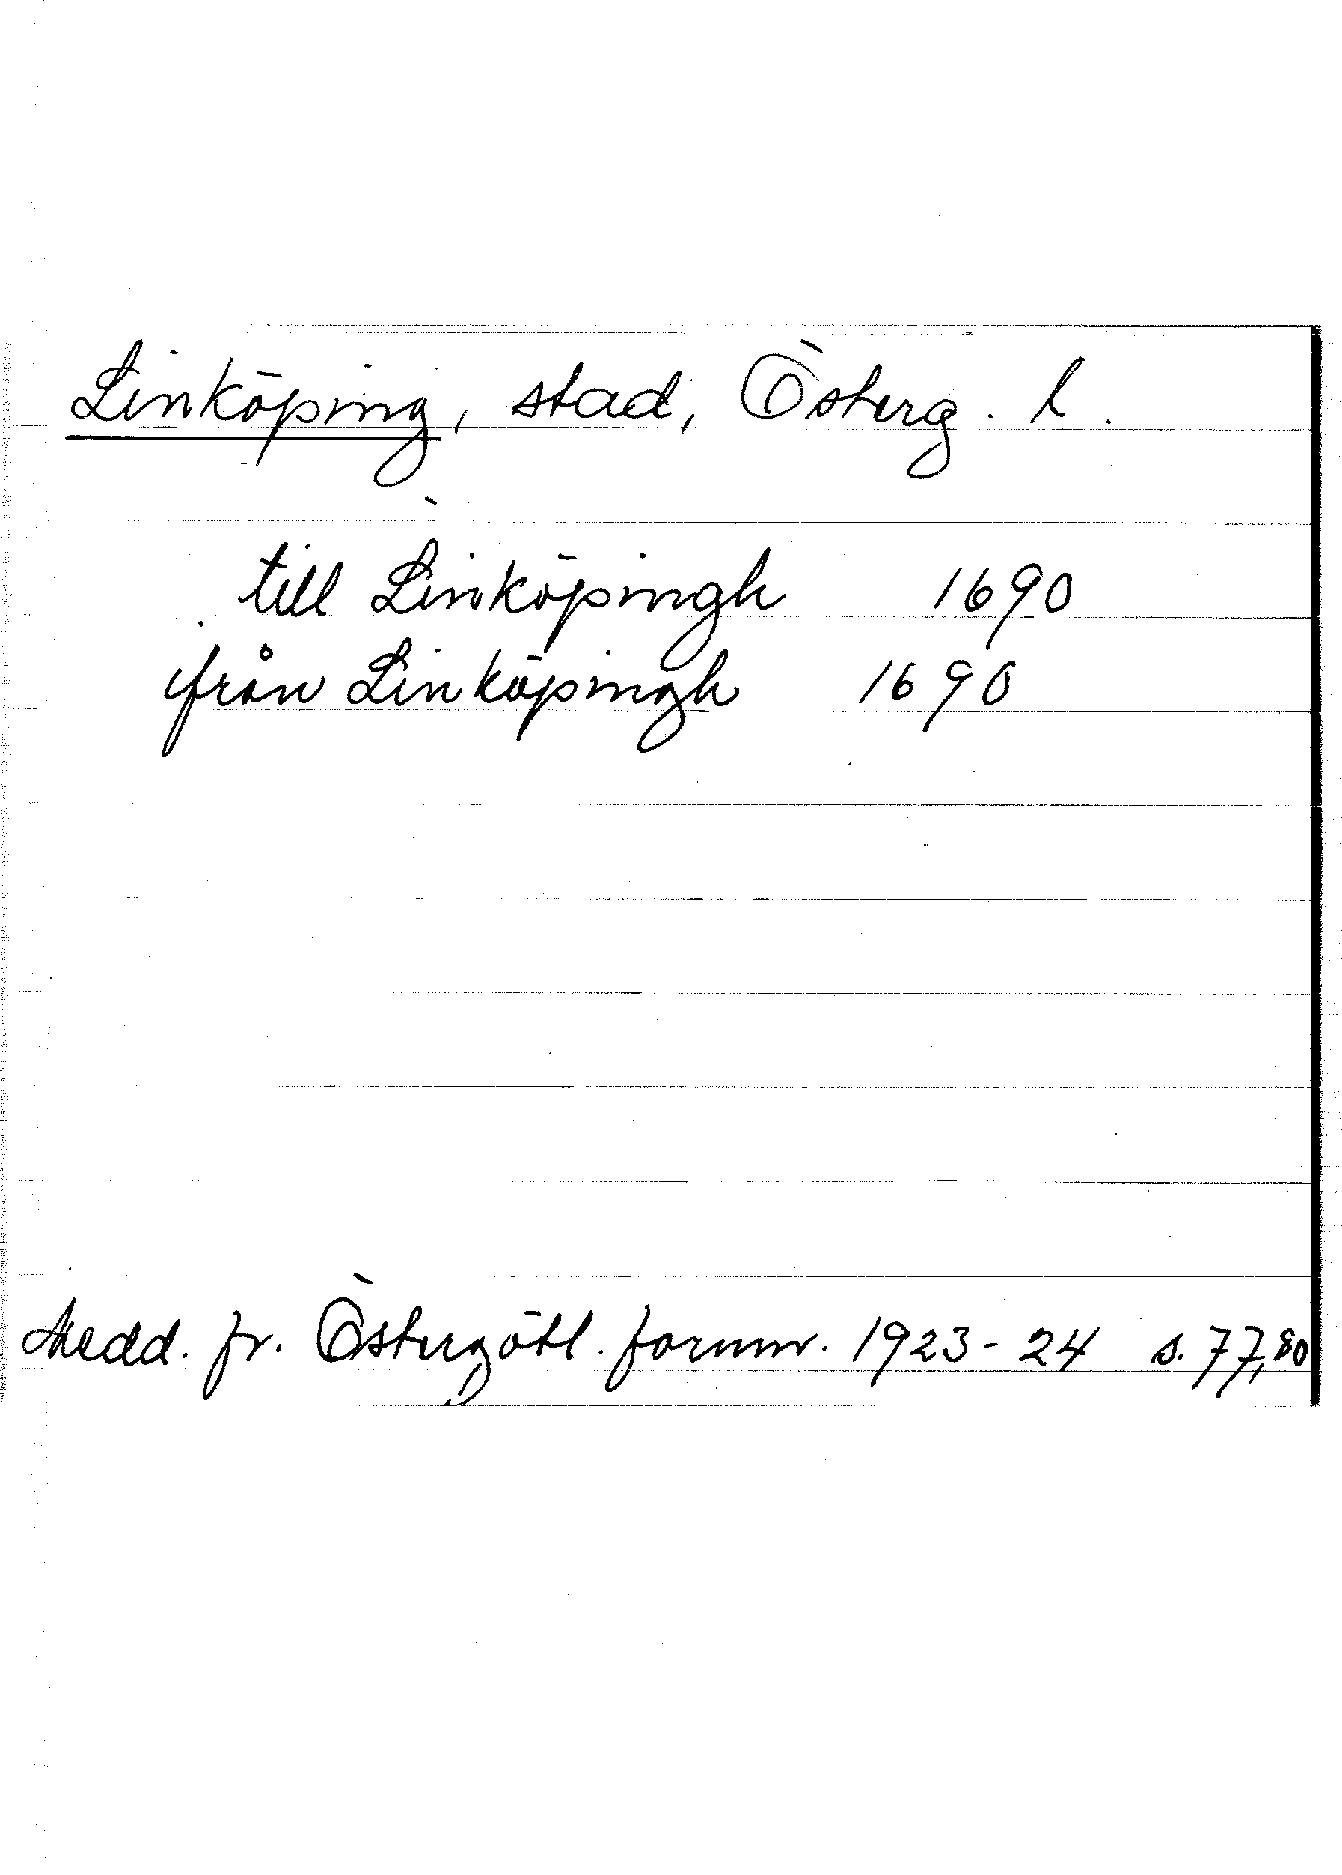 Linköping, stad, Österg. l.
till Linköpingh 1690
från Linköpingh 1690
Medd. fr. Östergötl. fornm. 1923-24 s. 77,80